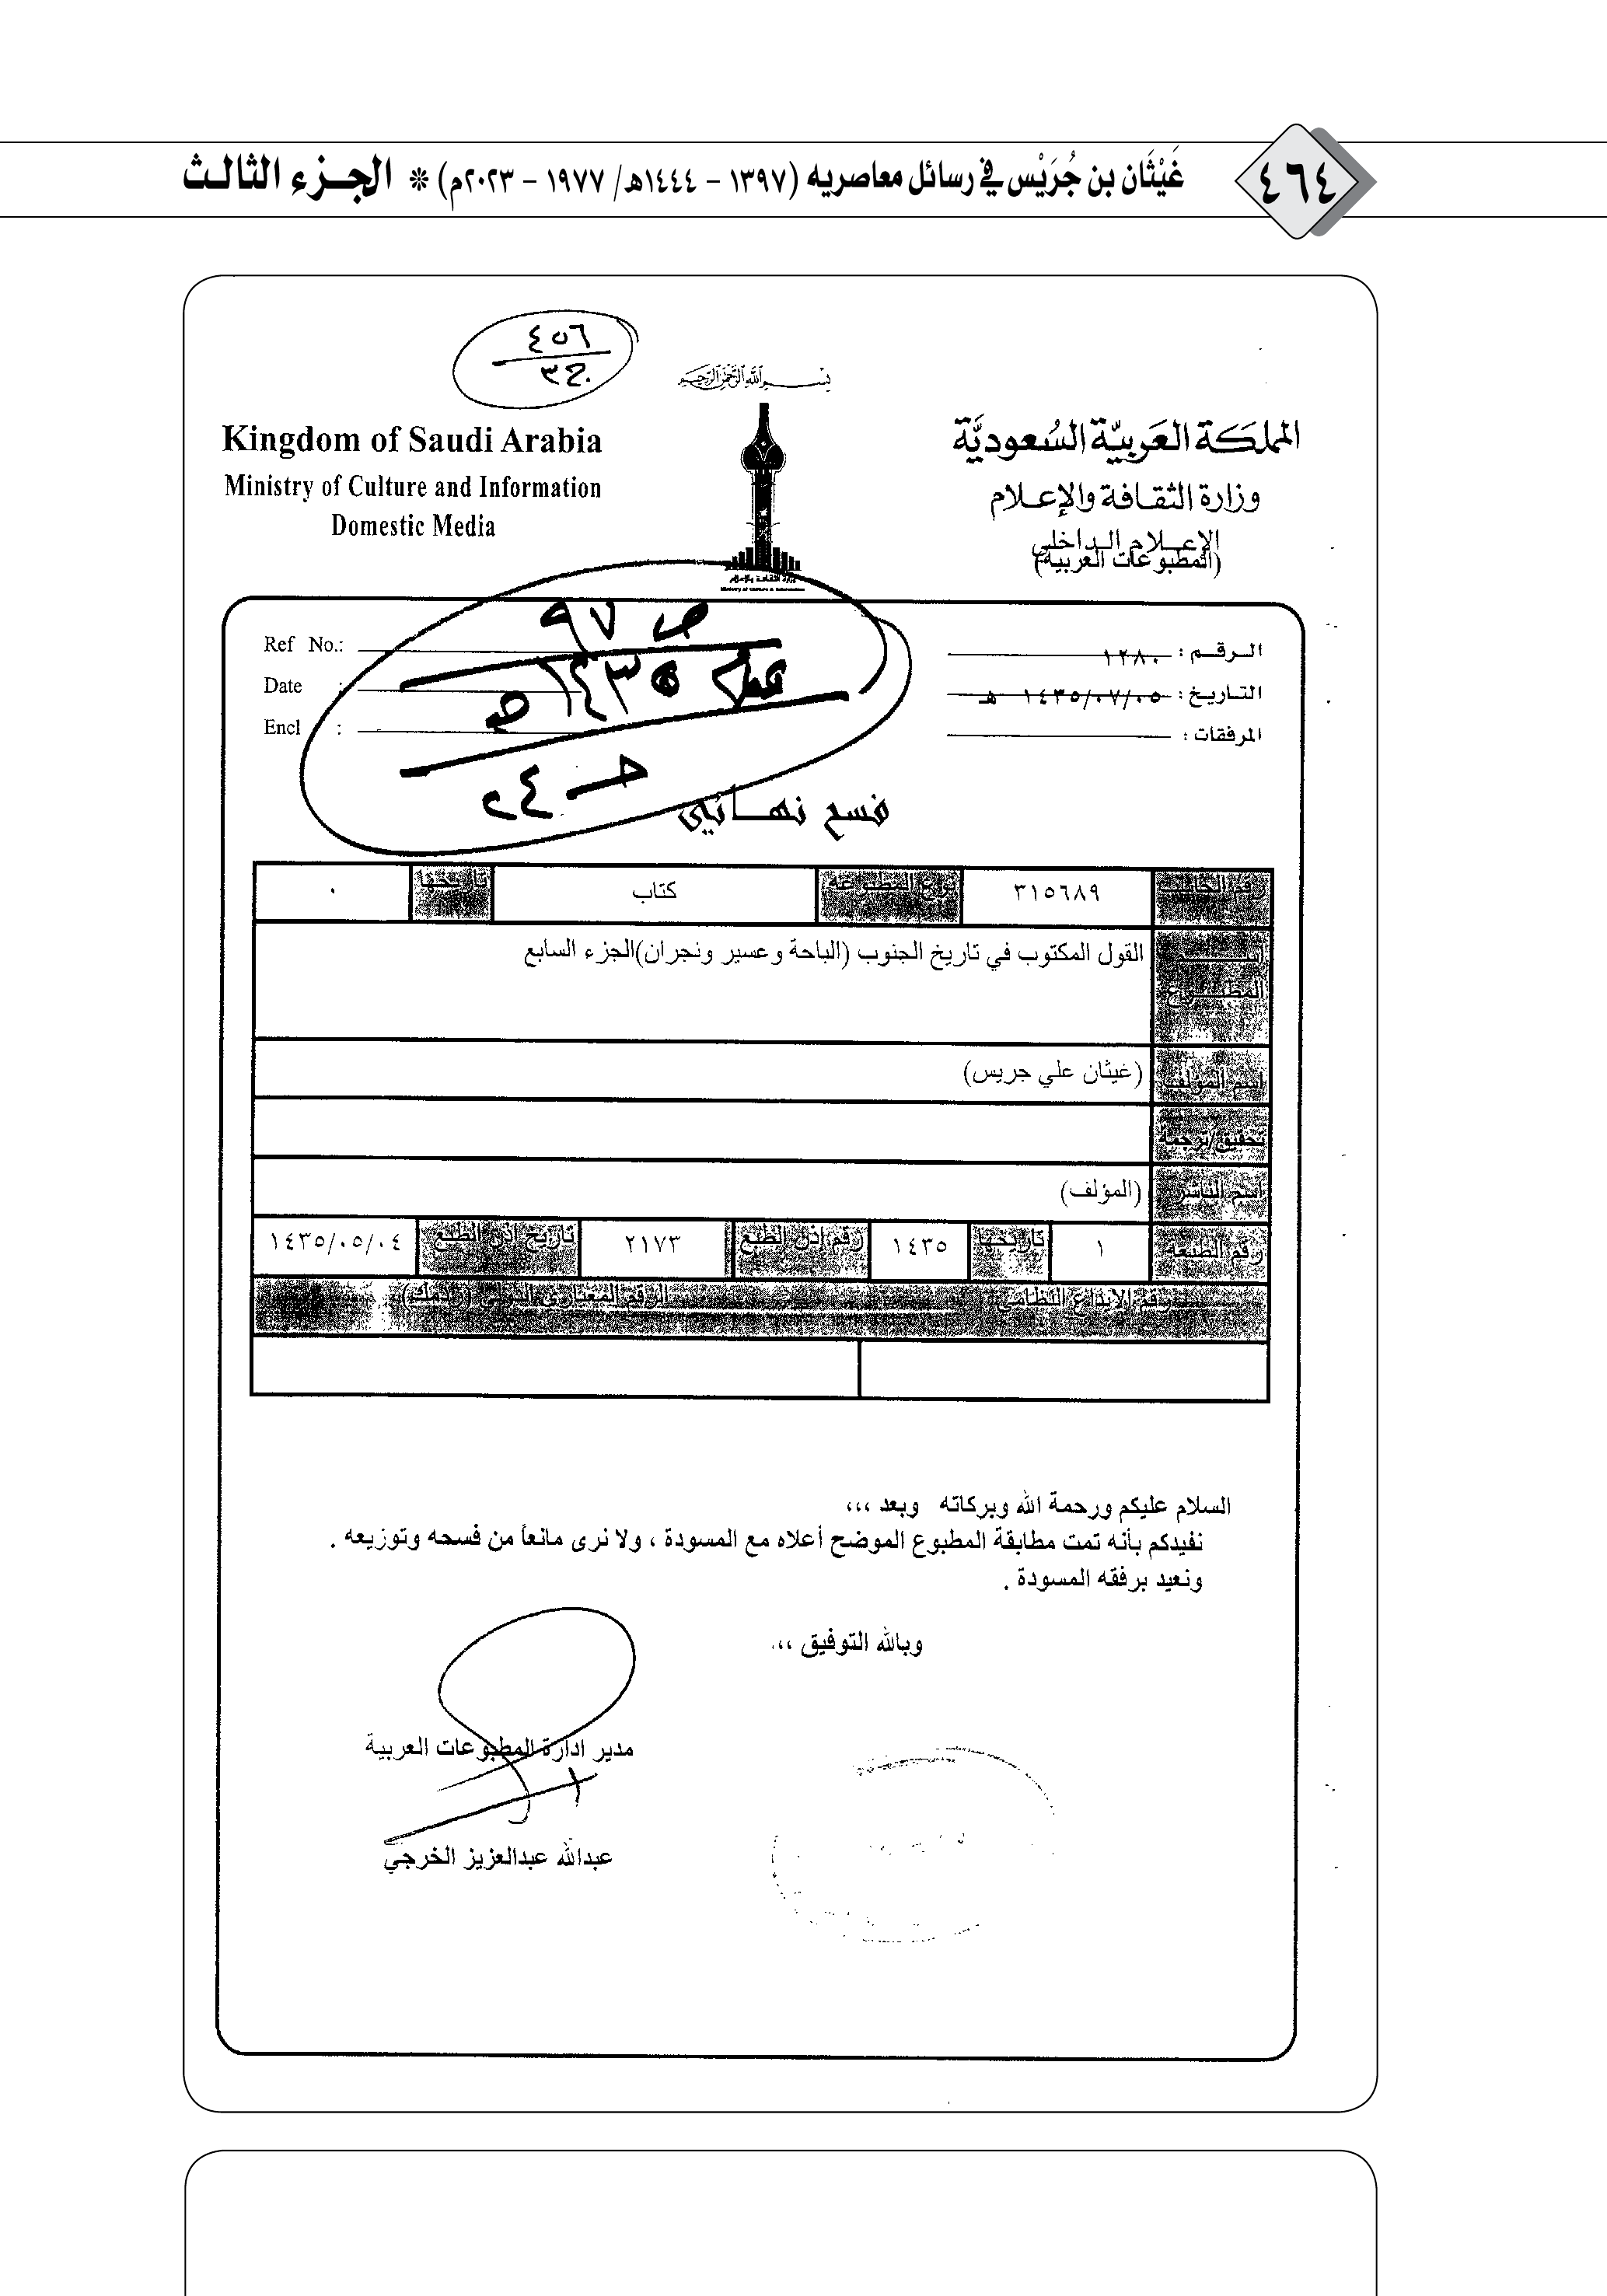 ٤٦٤
غَيْثَان بن جُرَيْس في رسائل معاصريه (١٣٩٧ - ١٤٤٤هـ/ ١٩٧٧ - ٢٠٢٣م) * الجزء الثالث
٤٥٦
ج٣
بسم الله الرحمن الرحيم
المملكة العربية السعودية
وزارة الثقافة والإعلام
الإعلام الداخلي
(المطبوعات العربية)
Kingdom of Saudi Arabia
Ministry of Culture and Information
Domestic Media
وزارة الثقافة والإعلام
Ministry of Culture & Information
الرقم : ١٢٨٠
التاريخ : ١٤٣٥/٠٧/٠٥ هـ
المرفقات :
Ref No.:
Date :
Encl :
ص ٩٧
١٤٣٥هـ
ح ـ ٢٤
فسح نهائي
رقم الحاسب ٣١٥٦٨٩ نوع المطبوعة كتاب تاريخها ٠
اسم المطبوع القول المكتوب في تاريخ الجنوب (الباحة وعسير ونجران)الجزء السابع
اسم المؤلف (غيثان علي جريس)
تحقيق/ترجمة
اسم الناشر (المؤلف)
رقم الطبعة ١ تاريخها ١٤٣٥ رقم اذن الطبع ٢١٧٣ تاريخ اذن الطبع ١٤٣٥/٠٥/٠٤
رقم الايداع النظامي الرقم المعياري الدولي (ردمك)
السلام عليكم ورحمة الله وبركاته وبعد ،،،
نفيدكم بأنه تمت مطابقة المطبوع الموضح أعلاه مع المسودة ، ولا نرى مانعاً من فسحه وتوزيعه .
ونعيد برفقه المسودة .
وبالله التوفيق ،،،
مدير ادارة المطبوعات العربية
عبدالله عبدالعزيز الخرجي